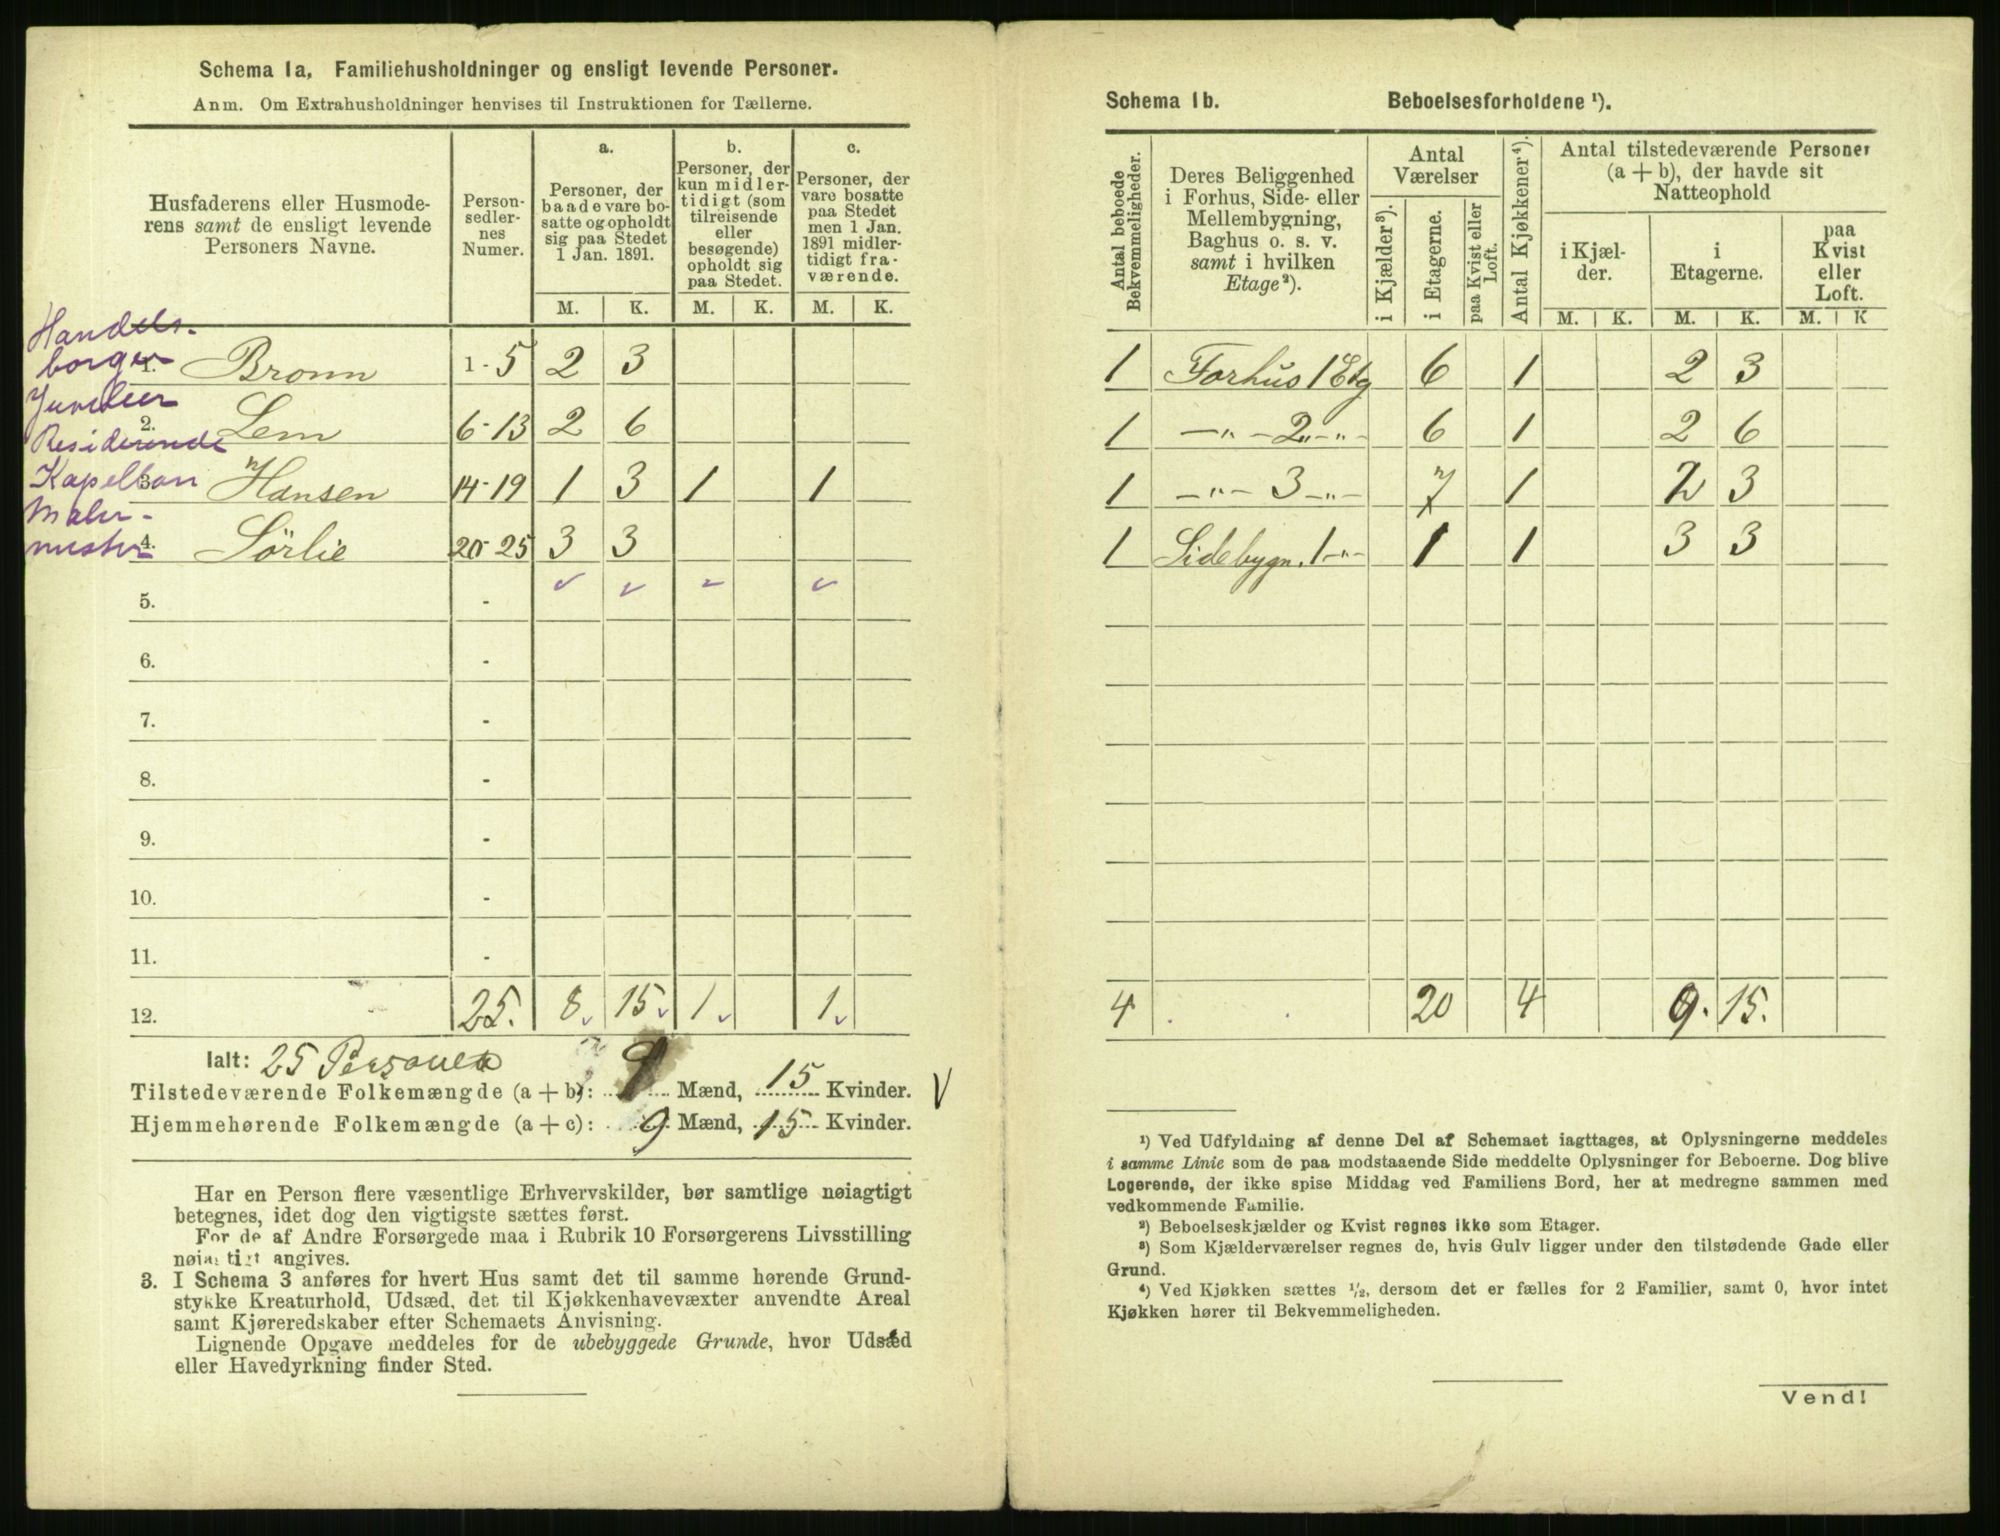 Schema 1a, Familiehusholdninger og ensligt levende Personer.
Anm. Om Extrahusholdninger henvises til Instruktionen for Tællerne.
Husfaderens eller Husmode-
rens samt de ensligt levende
Personers Navne.
Person-
sedler-
nes
Numer.
a.
Personer, der
baade vare bo-
satte og opholdt
sig paa Stedet
1 Jan. 1891.
b.
Personer, der
kun midler-
tidigt (som
tilreisende
eller
besøgende)
opholdt sig
paa Stedet.
c.
Personer, der
vare bosatte
paa Stedet
men 1 Jan.
1891 midler-
tidigt fra-
værende.
M. K. M. K. M. K.
Handels-
borger
1. Bronn 1-5 2 3
Juveleer
2. Lem 6-13 2 6
Residerende
Kapellan
3. Hansen 14-19 1 3 1 1
Maler-
mester
4. Sörlie 20-25 3 3
5. -
6. -
7. -
8. -
9. -
10. -
11. -
12. 25. 8. 15. 1. 1.
Ialt: 25 Personer
Tilstedeværende Folkemængde (a + b): 9 Mænd, 15 Kvinder.
Hjemmehørende Folkemængde (a + c): 9 Mænd, 15 Kvinder.
Har en Person flere væsentlige Erhvervskilder, bør samtlige nøiagtigt
betegnes, idet dog den vigtigste sættes først.
For de af Andre Forsørgede maa i Rubrik 10 Forsørgerens Livsstilling
nøiagtigt angives.
3. I Schema 3 anføres for hvert Hus samt det til samme hørende Grund-
stykke Kreaturhold, Udsæd, det til Kjøkkenhavevæxter anvendte Areal
samt Kjøreredskaber efter Schemaets Anvisning.
Lignende Opgave meddeles for de ubebyggede Grunde, hvor Udsæd
eller Havedyrkning finder Sted.
Schema 1b. Beboelsesforholdene ¹).
Antal beboede
Bekvemmeligheder.
Deres Beliggenhed
i Forhus, Side- eller
Mellembygning,
Baghus o. s. v.
samt i hvilken
Etage ²).
Antal
Værelser
i Kjælder ³).
i Etagerne.
paa Kvist eller
Loft.
Antal Kjøkkener ⁴).
Antal tilstedeværende Personer
(a + b), der havde sit
Natteophold
i Kjæl-
der.
i
Etagerne.
paa
Kvist
eller
Loft.
M. K. M. K. M. K
1 Forhus 1 Etg 6 1 2 3
1 -„- 2 -„- 6 1 2 6
1 -„- 3 -„- 7 1 2 3
1 Sidebygn. 1 -„- 1 1 3 3
4 20 4 9. 15.
¹) Ved Udfyldning af denne Del af Schemaet iagttages, at Oplysningerne meddeles
i samme Linie som de paa modstaaende Side meddelte Oplysninger for Beboerne. Dog blive
Logerende, der ikke spise Middag ved Familiens Bord, her at medregne sammen med
vedkommende Familie.
²) Beboelseskjælder og Kvist regnes ikke som Etager.
³) Som Kjælderværelser regnes de, hvis Gulv ligger under den tilstødende Gade eller
Grund.
⁴) Ved Kjøkken sættes ¹/₂, dersom det er fælles for 2 Familier, samt 0, hvor intet
Kjøkken hører til Bekvemmeligheden.
Vend!